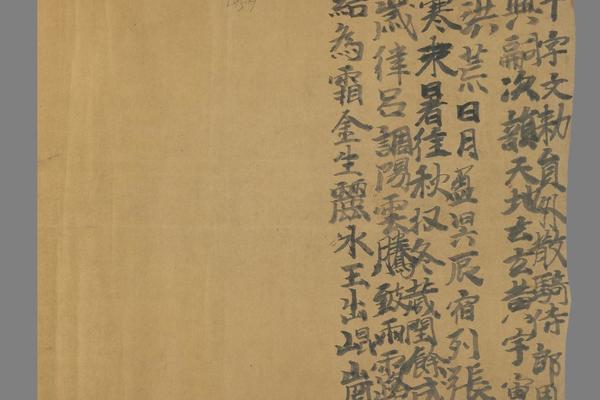 千字文勅員外散騎侍郎周
興嗣次韻天地玄玄黃宇宙
洪荒日月盈昃辰宿列張
寒來暑往秋收冬藏閏餘成
歲律呂調陽雲騰致雨露
結為霜金生麗水玉出崐崗